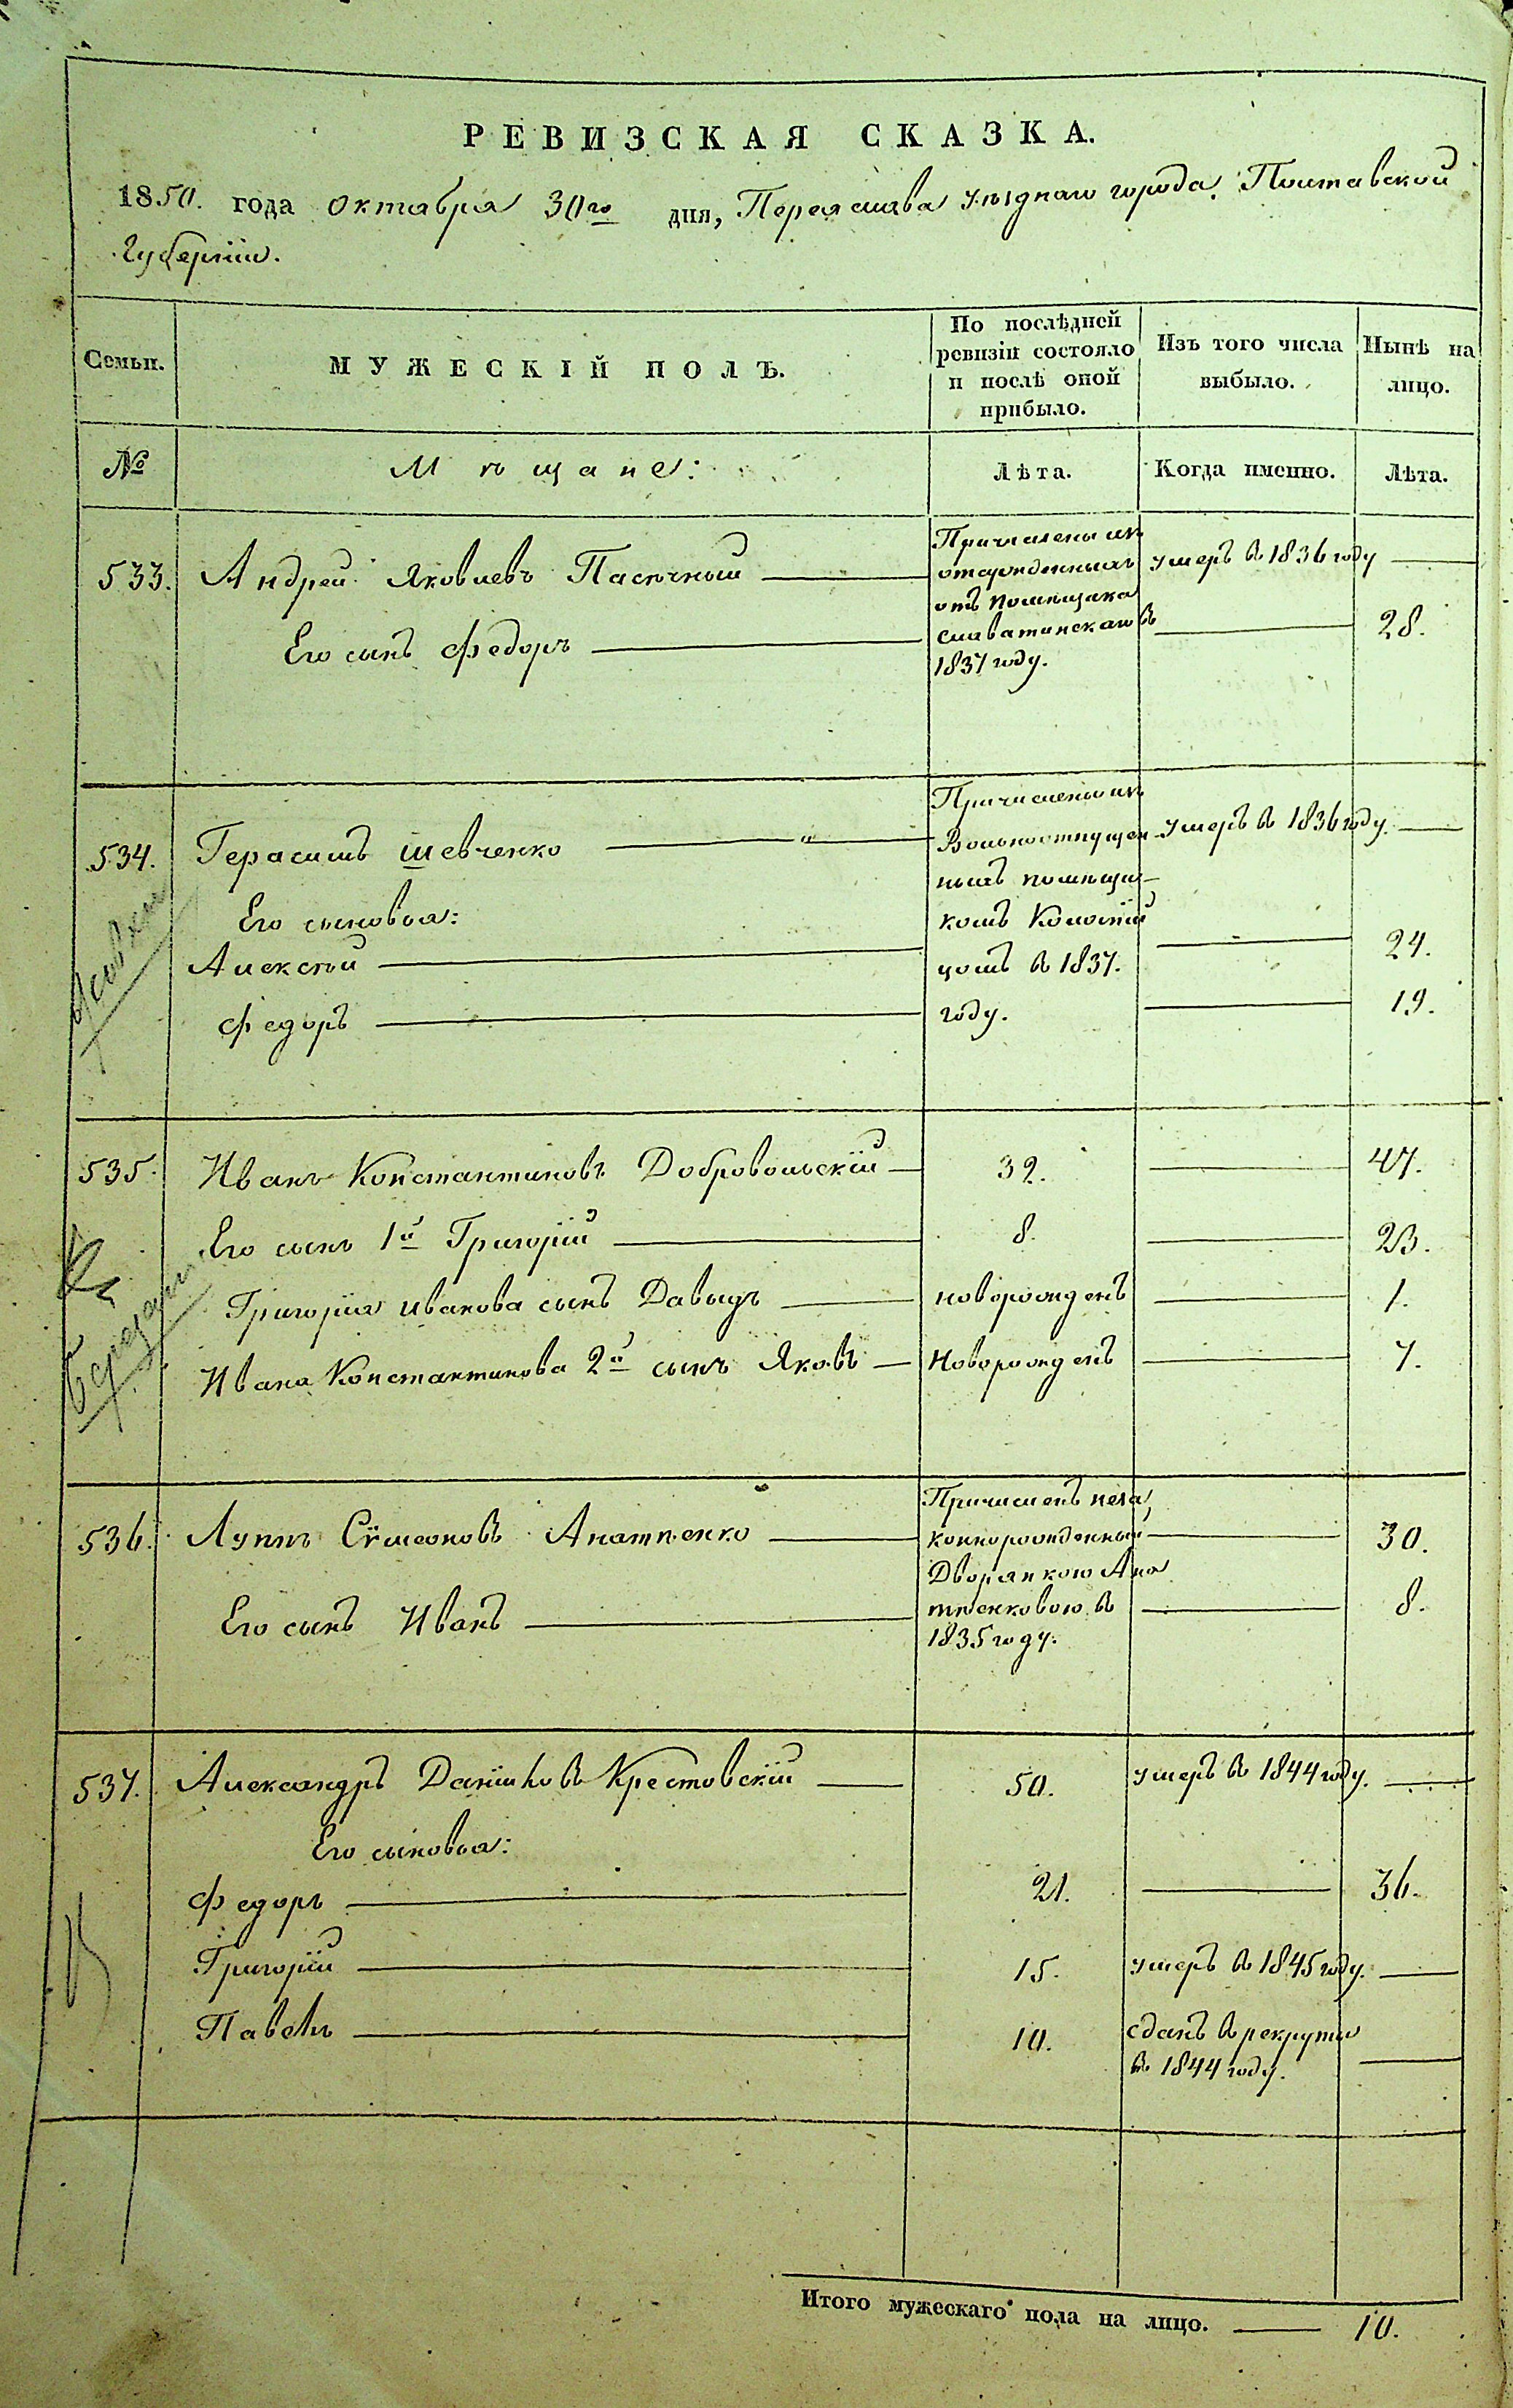 РЕВИЗСКАЯ СКАЗКА.
1850. года октября 30го дня, Переяслава уѣзднаго города, Полтавской
Губерніи.
Семьи.
МУЖЕСКІЙ ПОЛЪ.
По послѣдней
ревизіи состояло
и послѣ оной
прибыло.
Изъ того числа
выбыло.
Нынѣ на
лицо.
№
Мѣщане:
Лѣта.
Когда именно.
Лѣта.
533. Андрей Яковлевъ Пасѣчный
Причислены изъ
отсужденныхъ
отъ помѣщика
Славатинскаго в
1837 году.
умеръ в 1836 году
Его сынъ Федоръ 28.
534. Герасимъ Шевченко
Причислены изъ
Вольноотпущен
ныхъ помѣщи-
комъ
цомъ в 1837.
году.
умеръ в 1836 году.
Его сыновья:
Алексѣй 24.
Федоръ 19.
535. Иванъ Константиновъ Добровольскій 32. 47.
Его сынъ 1й Григорій 8. 23.
Григорія Иванова сынъ Давыдъ новорожденъ 1.
Ивана Константинова 2й сынъ Яковъ Новорожденъ 7.
536. Луппъ Сѵмеоновъ Анатѣенко
Причисленъ неза
коннорожденный
Дворянкою Ана
тѣенковою в
1835 году.
30.
Его сынъ Иванъ 8.
537. Александръ Даниловъ Крестовскій 50. умеръ в 1844 году.
Его сыновья:
Федоръ 21. 36.
Григорій 15. умеръ в 1845 году.
Павелъ 10. сданъ в рекруты
в 1844 году.
Итого мужескаго пола на лицо. 10.